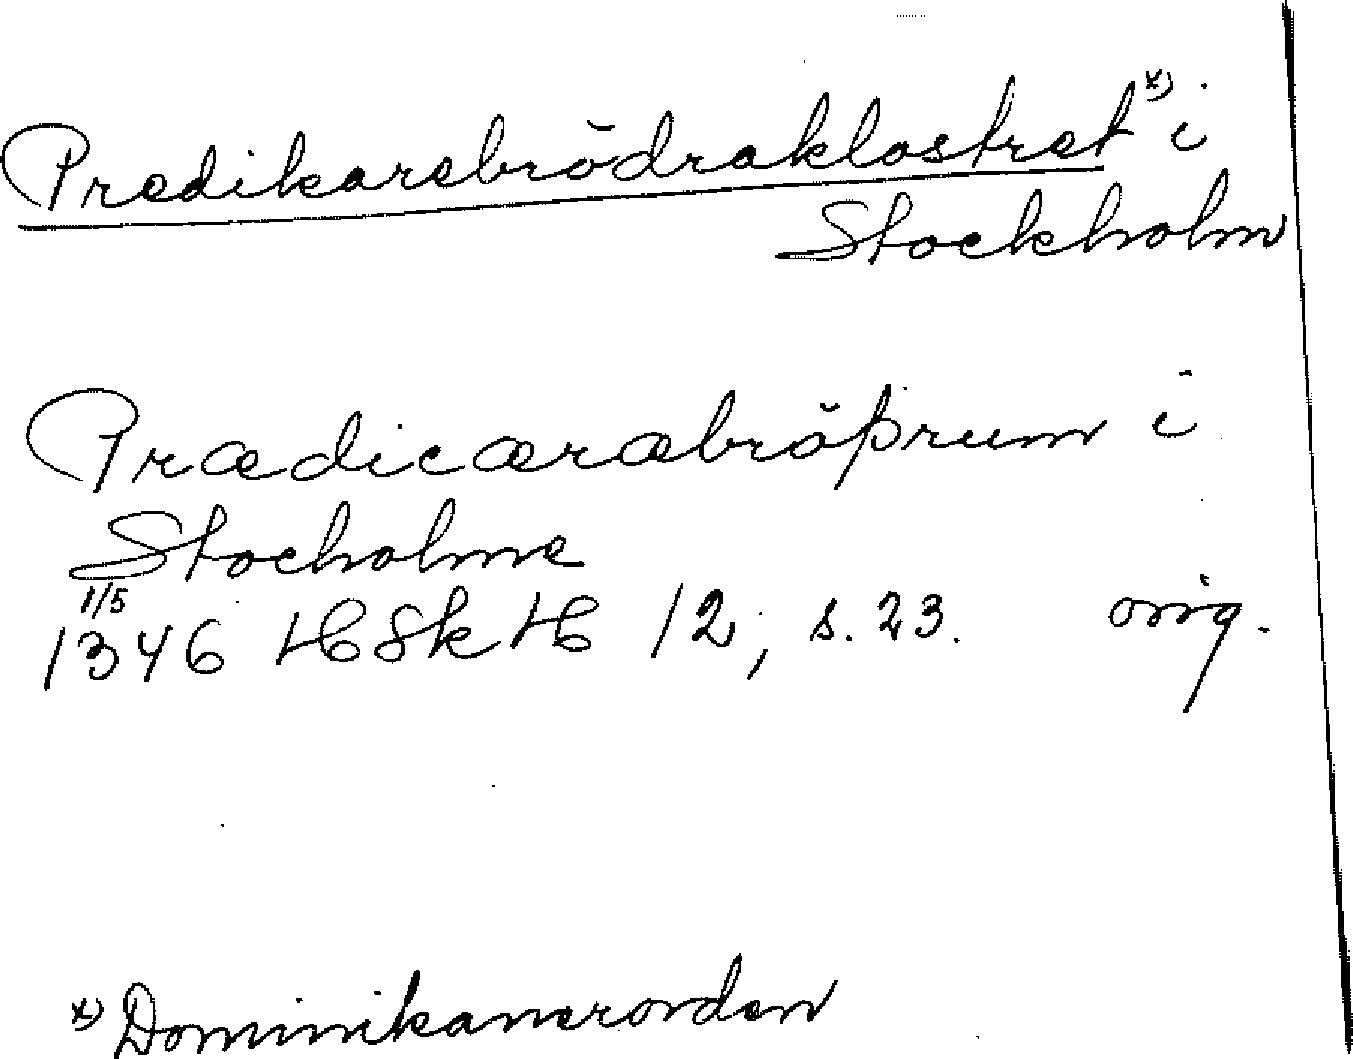 Predikarebrödraklostret *) i
Stockholm
Prædicærabröþrum i
Stocholme
1/5
1346 HSkH 12, s. 23. orig.
*) Dominikanerorden